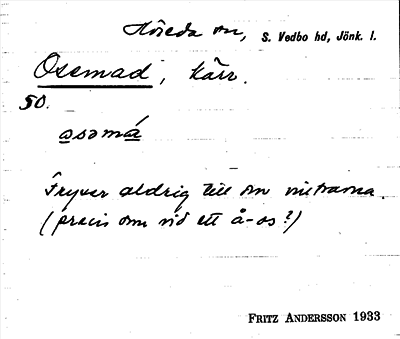 Höreda sn, S. Vedbo hd, Jönk. l.
Osemad, kärr.
50.
asəmá
Fryser aldrig till om vintrarna.
(precis som vid ett å-os?)
FRITZ ANDERSSON 1933